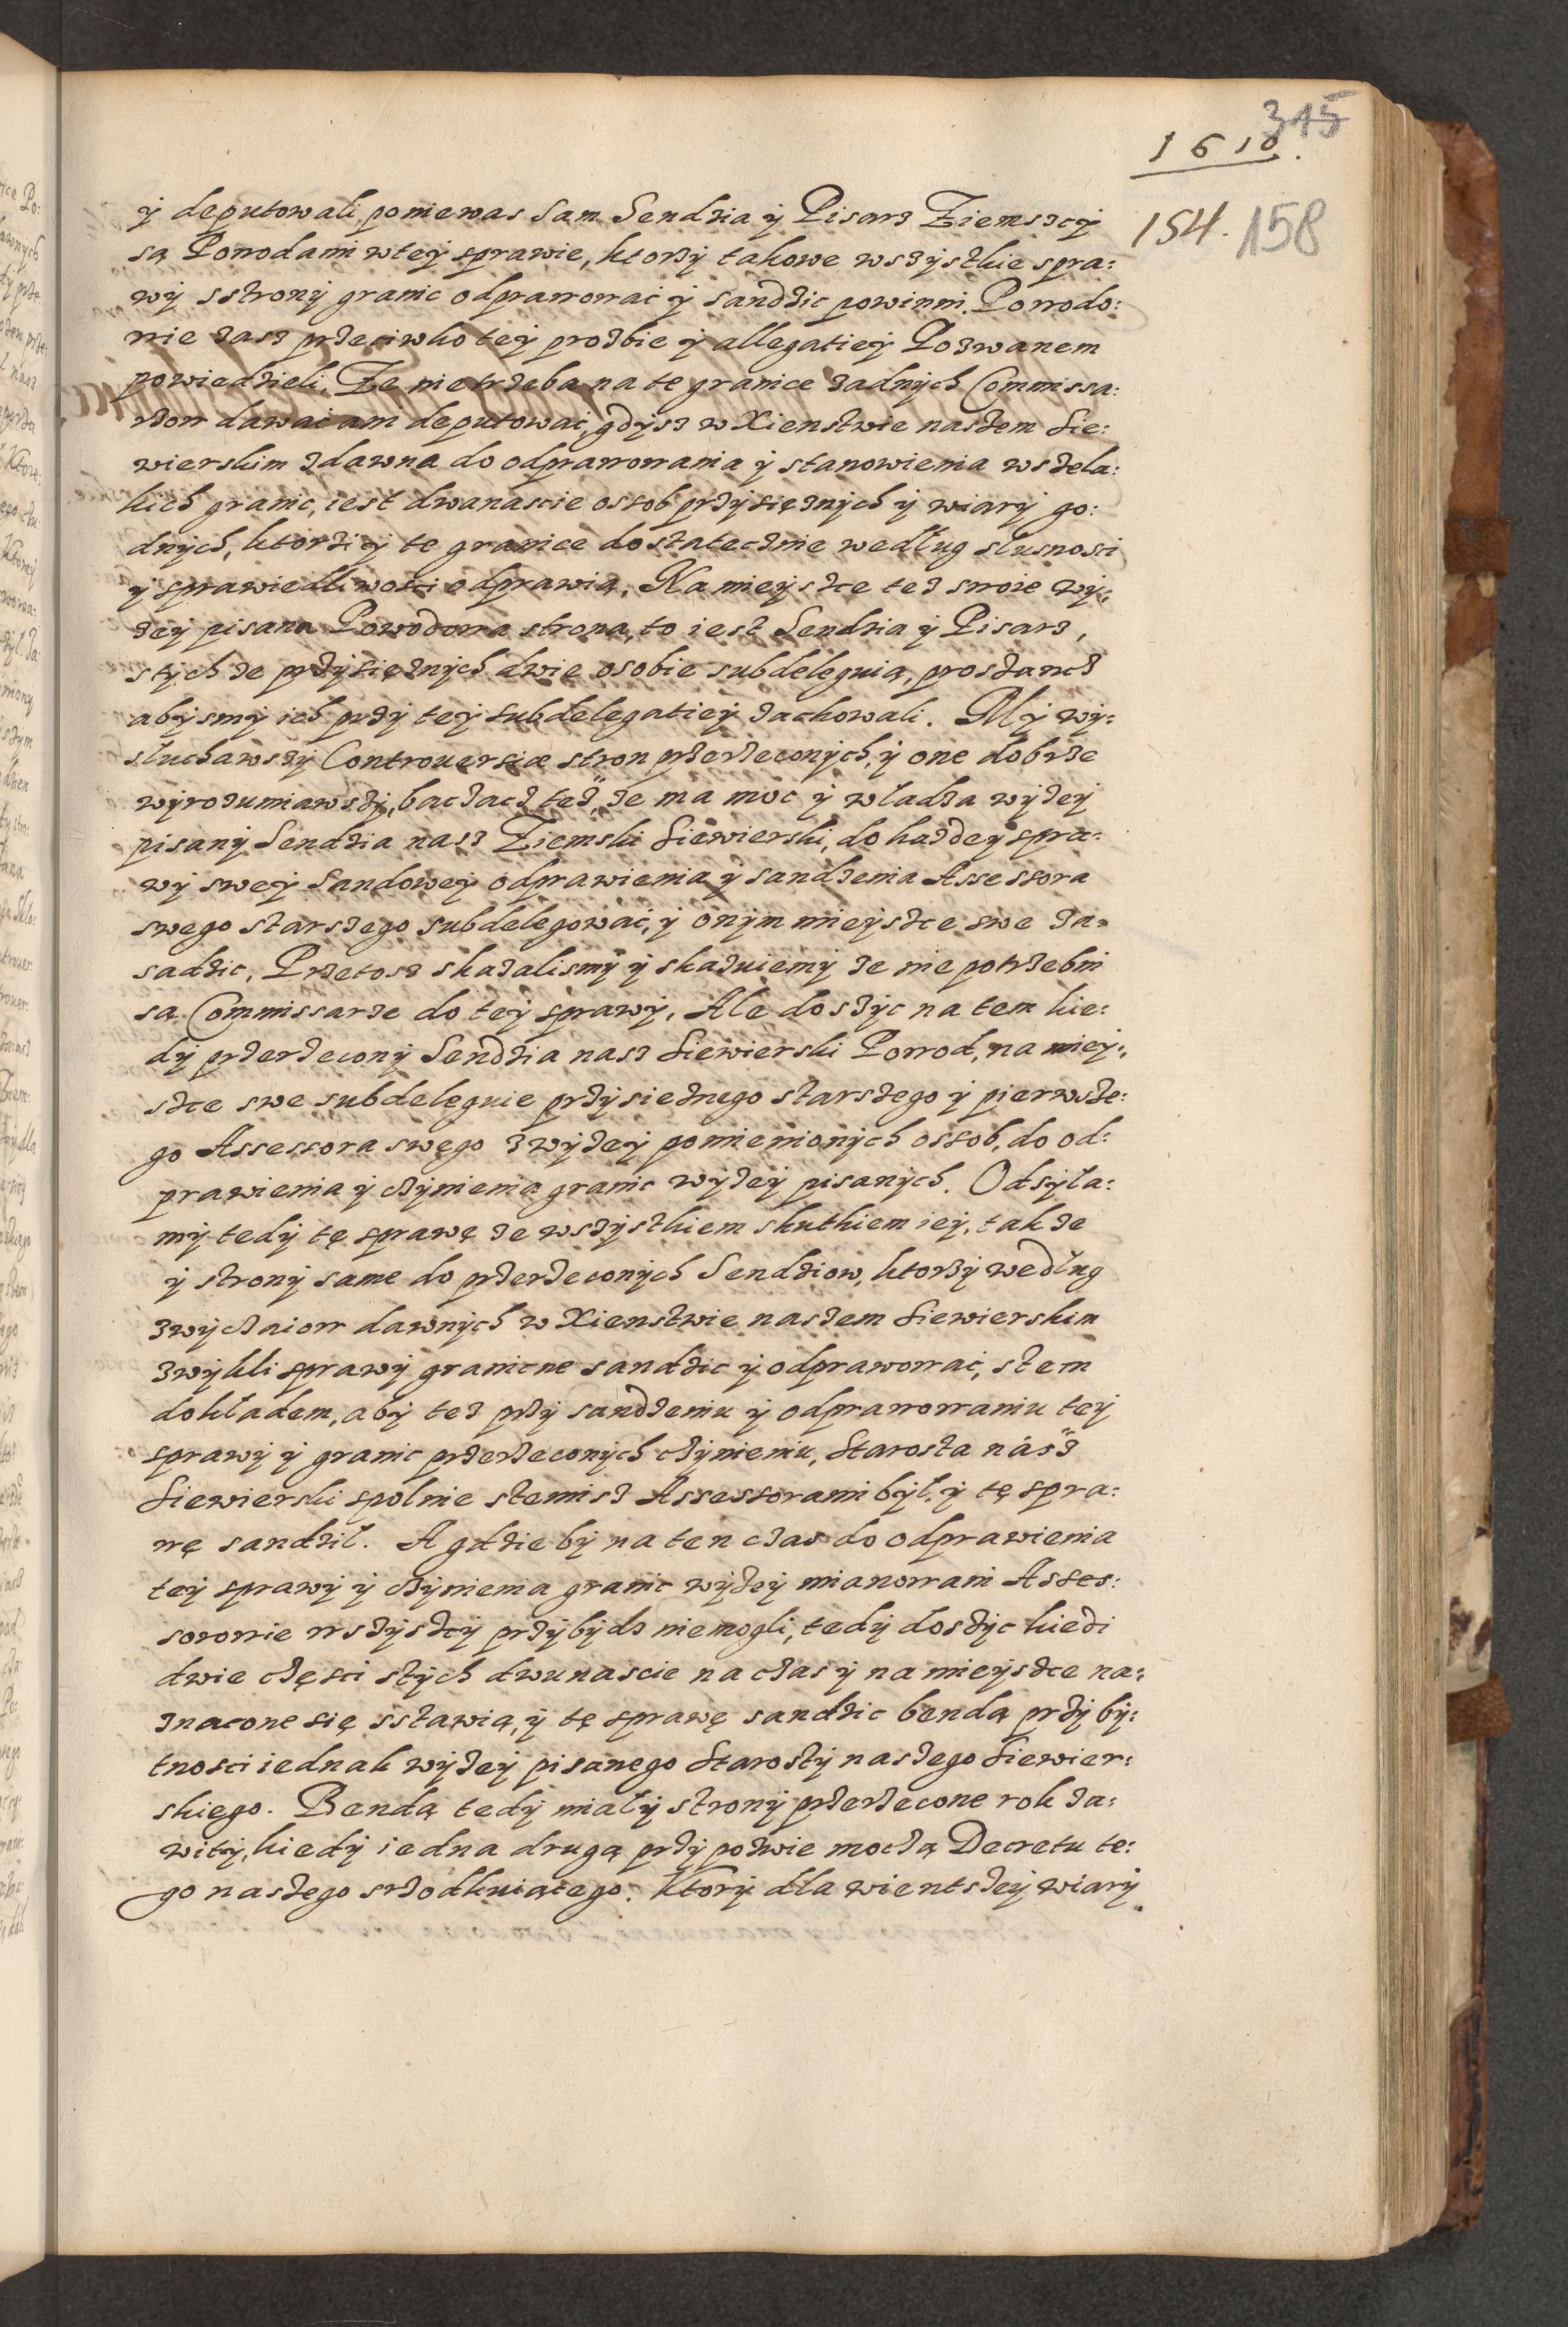 345
1610.
154. 158
ÿ deputowali, poniewas Sam Sendzia ÿ Pisarz Ziemszcÿ
są Powodami wteÿ sprawie, ktorzÿ takowe wszÿstkie spra:
wÿ sstronÿ granic odprawowac ÿ sandzic powinni. Powodo:
wie zasz przeciwko teÿ prozbie ÿ allegatieÿ Pozwanem
powiedzieli, Ze nietrzeba na te granice zadnÿch Commissa:
rzow dawac ani deputowac, gdÿsz w Xienstwie naszem Sie:
wierskim zdawna do odprawowania ÿ stanowienia wszela:
kich granic, iest dwanascie ossob przÿsięznÿch ÿ wiarÿ go:
dnÿch, ktorzi ÿ te granice dostatecznie według slusnosci
ÿ sprawiedliwosci odprawią. Na mieÿszce tez swoie wÿ:
zeÿ pisana Powodowa strona, to iest Sendzia ÿ Pisarz,
stÿch ze przÿsięznÿch dwie osobie subdeleguią, proszancz
abÿsmÿ ich przÿ teÿ subdelegatieÿ zachowali. Mÿ wÿ:
słuchawszÿ Controuersiæ stron przerzeconÿch, ÿ one dobrze
wÿrozumiawszÿ, baczacz tez, ze ma moc ÿ władza wÿzeÿ
pisanÿ Sendzia nasz Ziemski Siewierski, do kazdeÿ spra:
wÿ sweÿ Sandoweÿ odprawienia ÿ sandzenia Assessora
swego starszego subdelegowac, ÿ onÿm mieÿszce swe za:
sadzic, Przetosz skazalismÿ ÿ skazuiemÿ ze nie potrzebni
są Commissarze do teÿ sprawÿ, Ale doszÿc na tem kie:
dÿ przerzeconÿ Sendzia nasz Siewierski Powod, na mieÿ:
szce swe subdeleguie przÿsieznego starszego ÿ pierwsze:
go Assessora swego zwÿzeÿ pomienionÿch ossob, do od:
prawienia ÿ czÿnienia granic wÿzeÿ pisanÿch. Odsÿła:
mÿ tedÿ tę sprawę ze wszÿstkiem skutkiem ieÿ, tak ze
ÿ stronÿ same do przerzeconÿch Sendziow, ktorzÿ według
zwÿczaiow dawnÿch w Xienstwie naszem Siewierskim
zwÿkli sprawÿ granicne sandzic ÿ odprawowac, stem
dokładem, abÿ tez przÿ sandzeniu ÿ odprawowaniu teÿ
sprawÿ ÿ granic przerzeconÿch czÿnieniu, Starosta nász
Siewierski spolnie stemisz Assessorami bÿł, ÿ tę spra:
wę sandzil. A gdzie bÿ na ten czas do odprawienia
teÿ sprawÿ ÿ czÿnienia granic wÿzeÿ mianowani Asses:
sorowie wszÿszcÿ przÿbÿdz niemogli, tedÿ doszÿc kiedi
dwie częsci stÿch dwunascie na czas ÿ na mieÿszce na:
znacone się sstawią, ÿ tę sprawę sandzic bendą przÿ bÿ:
tnosci iednak wÿzeÿ pisanego Starostÿ naszego Siewier:
skiego. Bendą tedÿ miałÿ stronÿ przerzecone rok za:
witÿ, kiedÿ iedna drugą przÿpozwie moczą Decretu te:
go naszego srzodkuiącego. Ktorÿ dla wientszeÿ wiarÿ